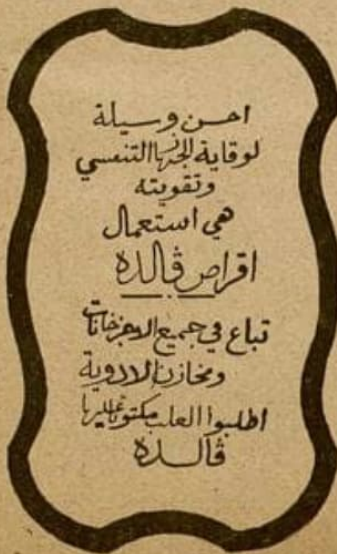 احسن وسيلة
لوقاية الجهاز التنفسي
وتقويته
هي استعمال
اقراص ڤالده
تباع في جميع الاجزخانات
ومخازن الادوية
اطلبوا العلب مكتوبا عليها
ڤالده